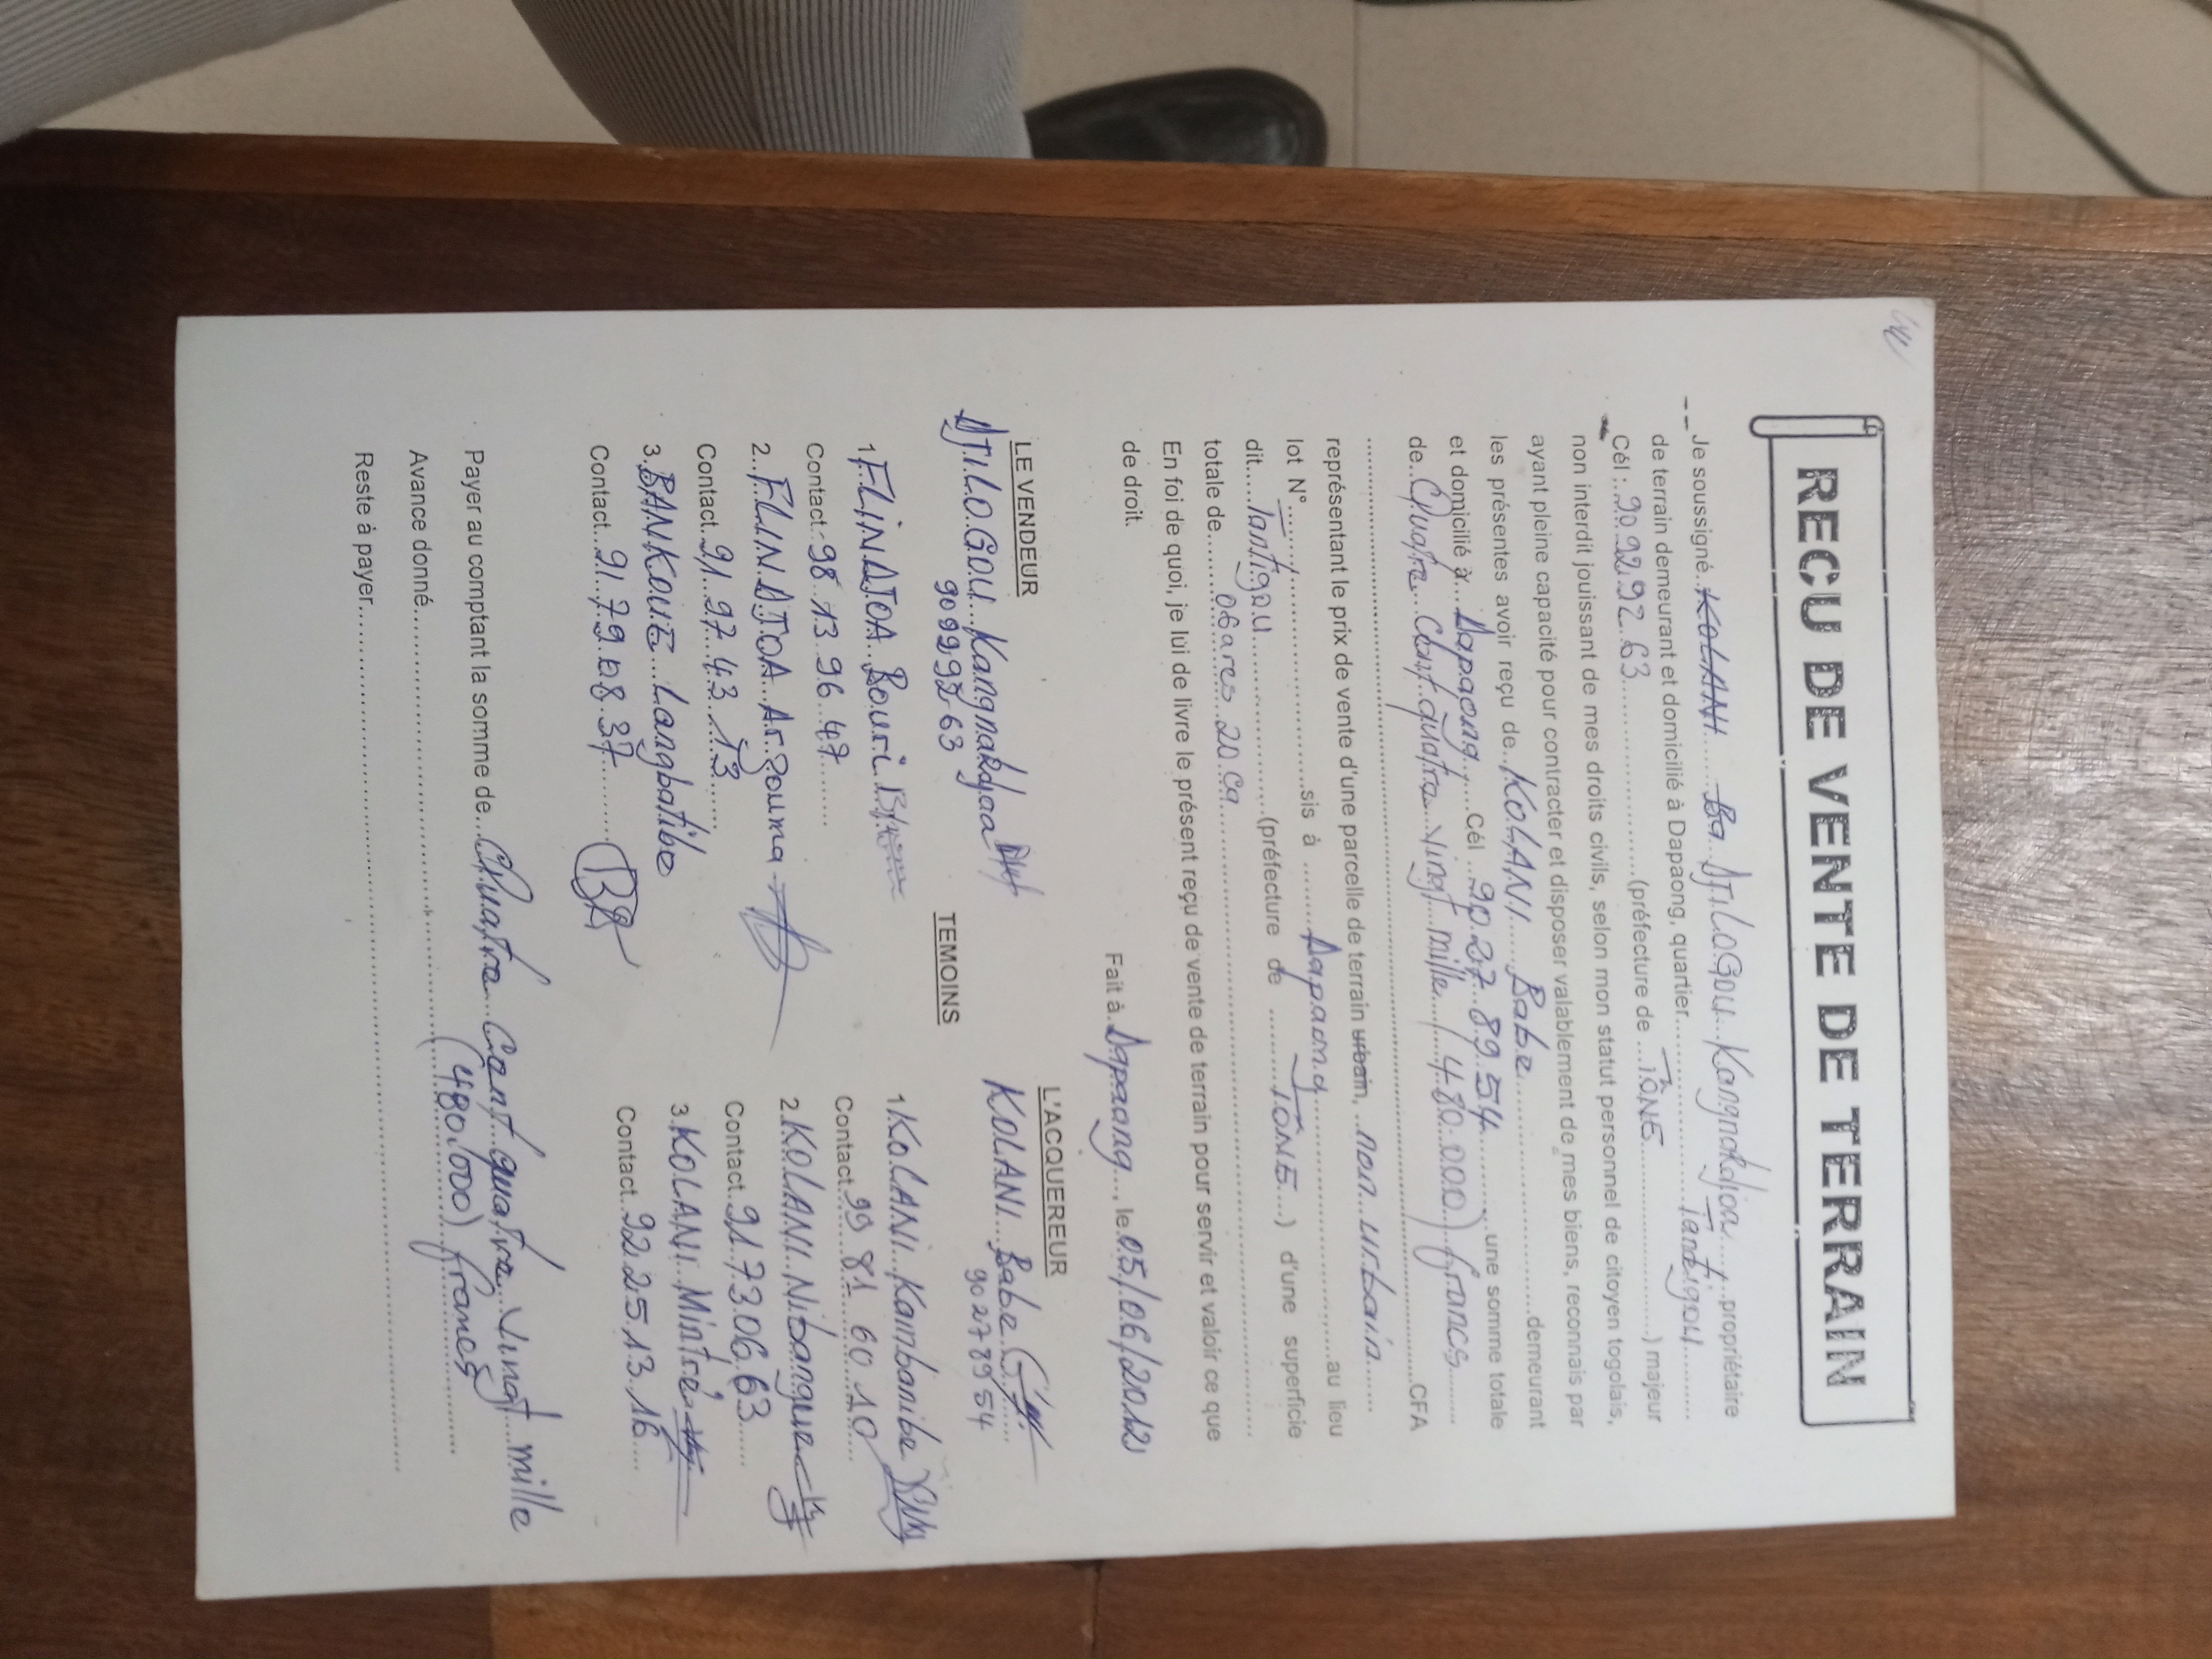 RECU DE VENTE DE TERRAIN
Je soussigné..KOLANI......Ba..DJILOGOU...Kangnakdjoa.....,..propriétaire
de terrain demeurant et domicilié à Dapaong, quartier................Tantigou..........
Cél :..90.92.92.63.............................(préfecture de ...TÔNE.....................) majeur
non interdit jouissant de mes droits civils, selon mon statut personnel de citoyen togolais,
ayant pleine capacité pour contracter et disposer valablement de mes biens, reconnais par
les présentes avoir reçu de..KOLANI......Babe..............................demeurant
et domicilié à...Dapaong.,.....Cél ...90.27..89.54..............une somme totale
de..Quatre...Cent..quatre...Vingt...mille..../.....(480.000) francs..........
..............................................................................................CFA
représentant le prix de vente d'une parcelle de terrain urbain, ..non...urbain.......
lot N°....../..........................sis à ........Dapaong..............................au lieu
dit....Tantigou....................(préfecture de .........TÔNE...) d'une superficie
totale de........06ares..20.ca......................................................
En foi de quoi, je lui de livre le présent reçu de vente de terrain pour servir et valoir ce que
de droit.
Fait à.Dapaong..., le.05/06/2012
LE VENDEUR
L'ACQUEREUR
DJILOGOU...Kangnakdjoa
KOLANI...Babe
90 27 89 54
TEMOINS
1.FLINDJOA..Bouri
1.KOLANI..Kambanibe
Contact..98.13.96.47.........
Contact..99 81 60 10....
2..FLINDJOA...Argouma
2.KOLANI..Nibangue
Contact..91..97..43..13......
Contact..91.73.06.63.....
3.BANKOUE...Langbatibe
3.KOLANI..Mintré
Contact..91..79.08.37........
Contact..92.25.13.16....
Payer au comptant la somme de...Quatre...Cent..quatre..Vingt...mille
(480.000) francs
Avance donné............................................................
Reste à payer............................................................